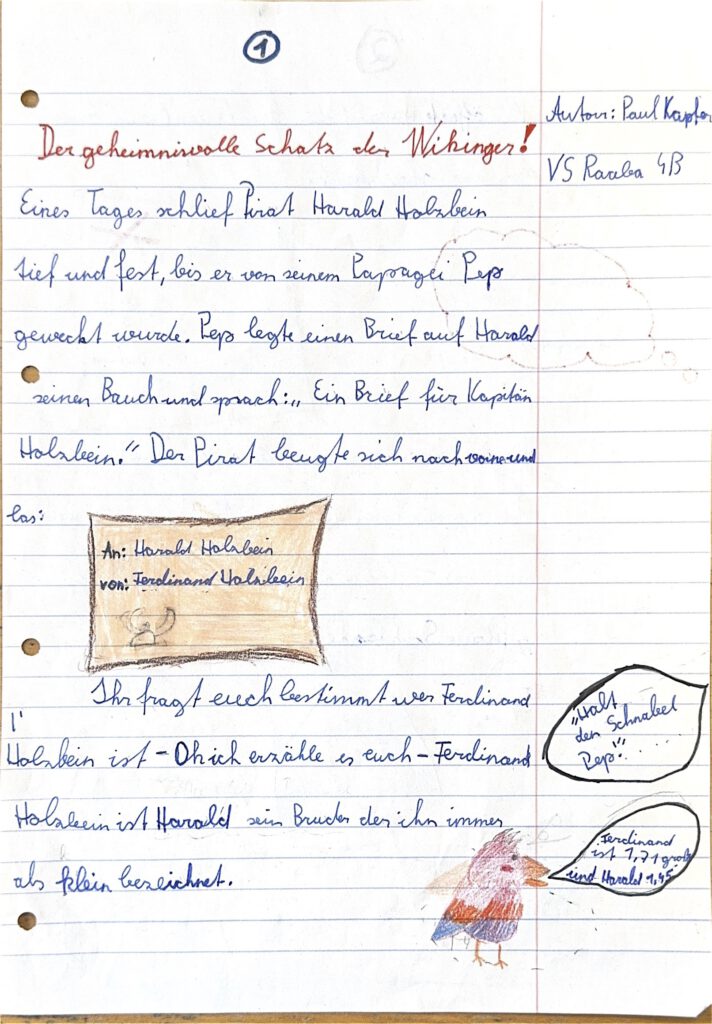 1
Autor: Paul Kapfer
VS Raaba 4B
Der geheimnisvolle Schatz der Wikinger!
Eines Tages schlief Pirat Harald Holzbein
tief und fest, bis er von seinem Papagei Pep
geweckt wurde. Pep legte einen Brief auf Harald
seinen Bauch und sprach: „Ein Brief für Kapitän
Holzbein." Der Pirat beugte sich nach vorne und
las:
An: Harald Holzbein
von: Ferdinand Holzbein
Ihr fragt euch bestimmt wer Ferdinand
Holzbein ist - Oh ich erzähle es euch - Ferdinand
Holzbein ist Harald sein Bruder der ihn immer
als klein bezeichnet.
„Halt
den Schnabel
Pep!"......
Ferdinand
ist 1,71 groß
und Harald 1,45